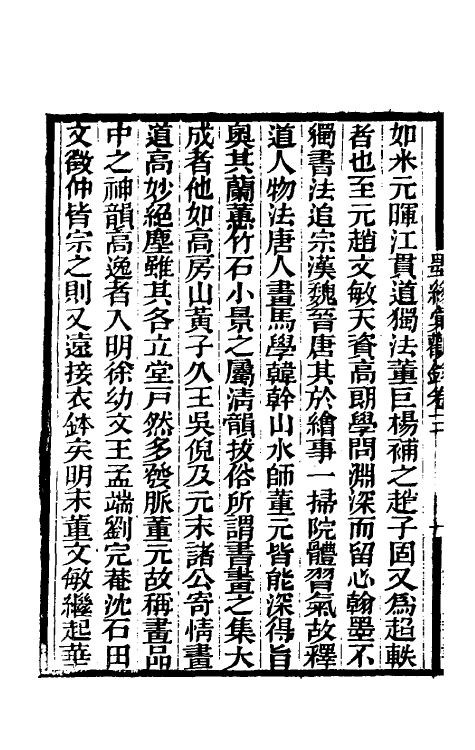 如米元暉江貫道獨法董巨楊補之趙子固又爲超軼
者也至元趙文敏天資高朗學問淵深而留心翰墨不
獨書法追宗漢魏晉唐其於繪事一掃院體習氣故釋
道人物法唐人畫馬學韓幹山水師董元皆能深得旨
奧其蘭蕙竹石小景之屬清韻拔俗所謂書畫之集大
成者他如高房山黃子久王吳倪及元末諸公寄情畫
道高妙絕塵雖其各立堂戸然多發脈董元故稱畫品
中之神韻高逸者入明徐幼文王孟端劉完菴沈石田
文徵仲皆宗之則又遠接衣鉢矣明末董文敏繼起華
墨緣彙觀錄卷三